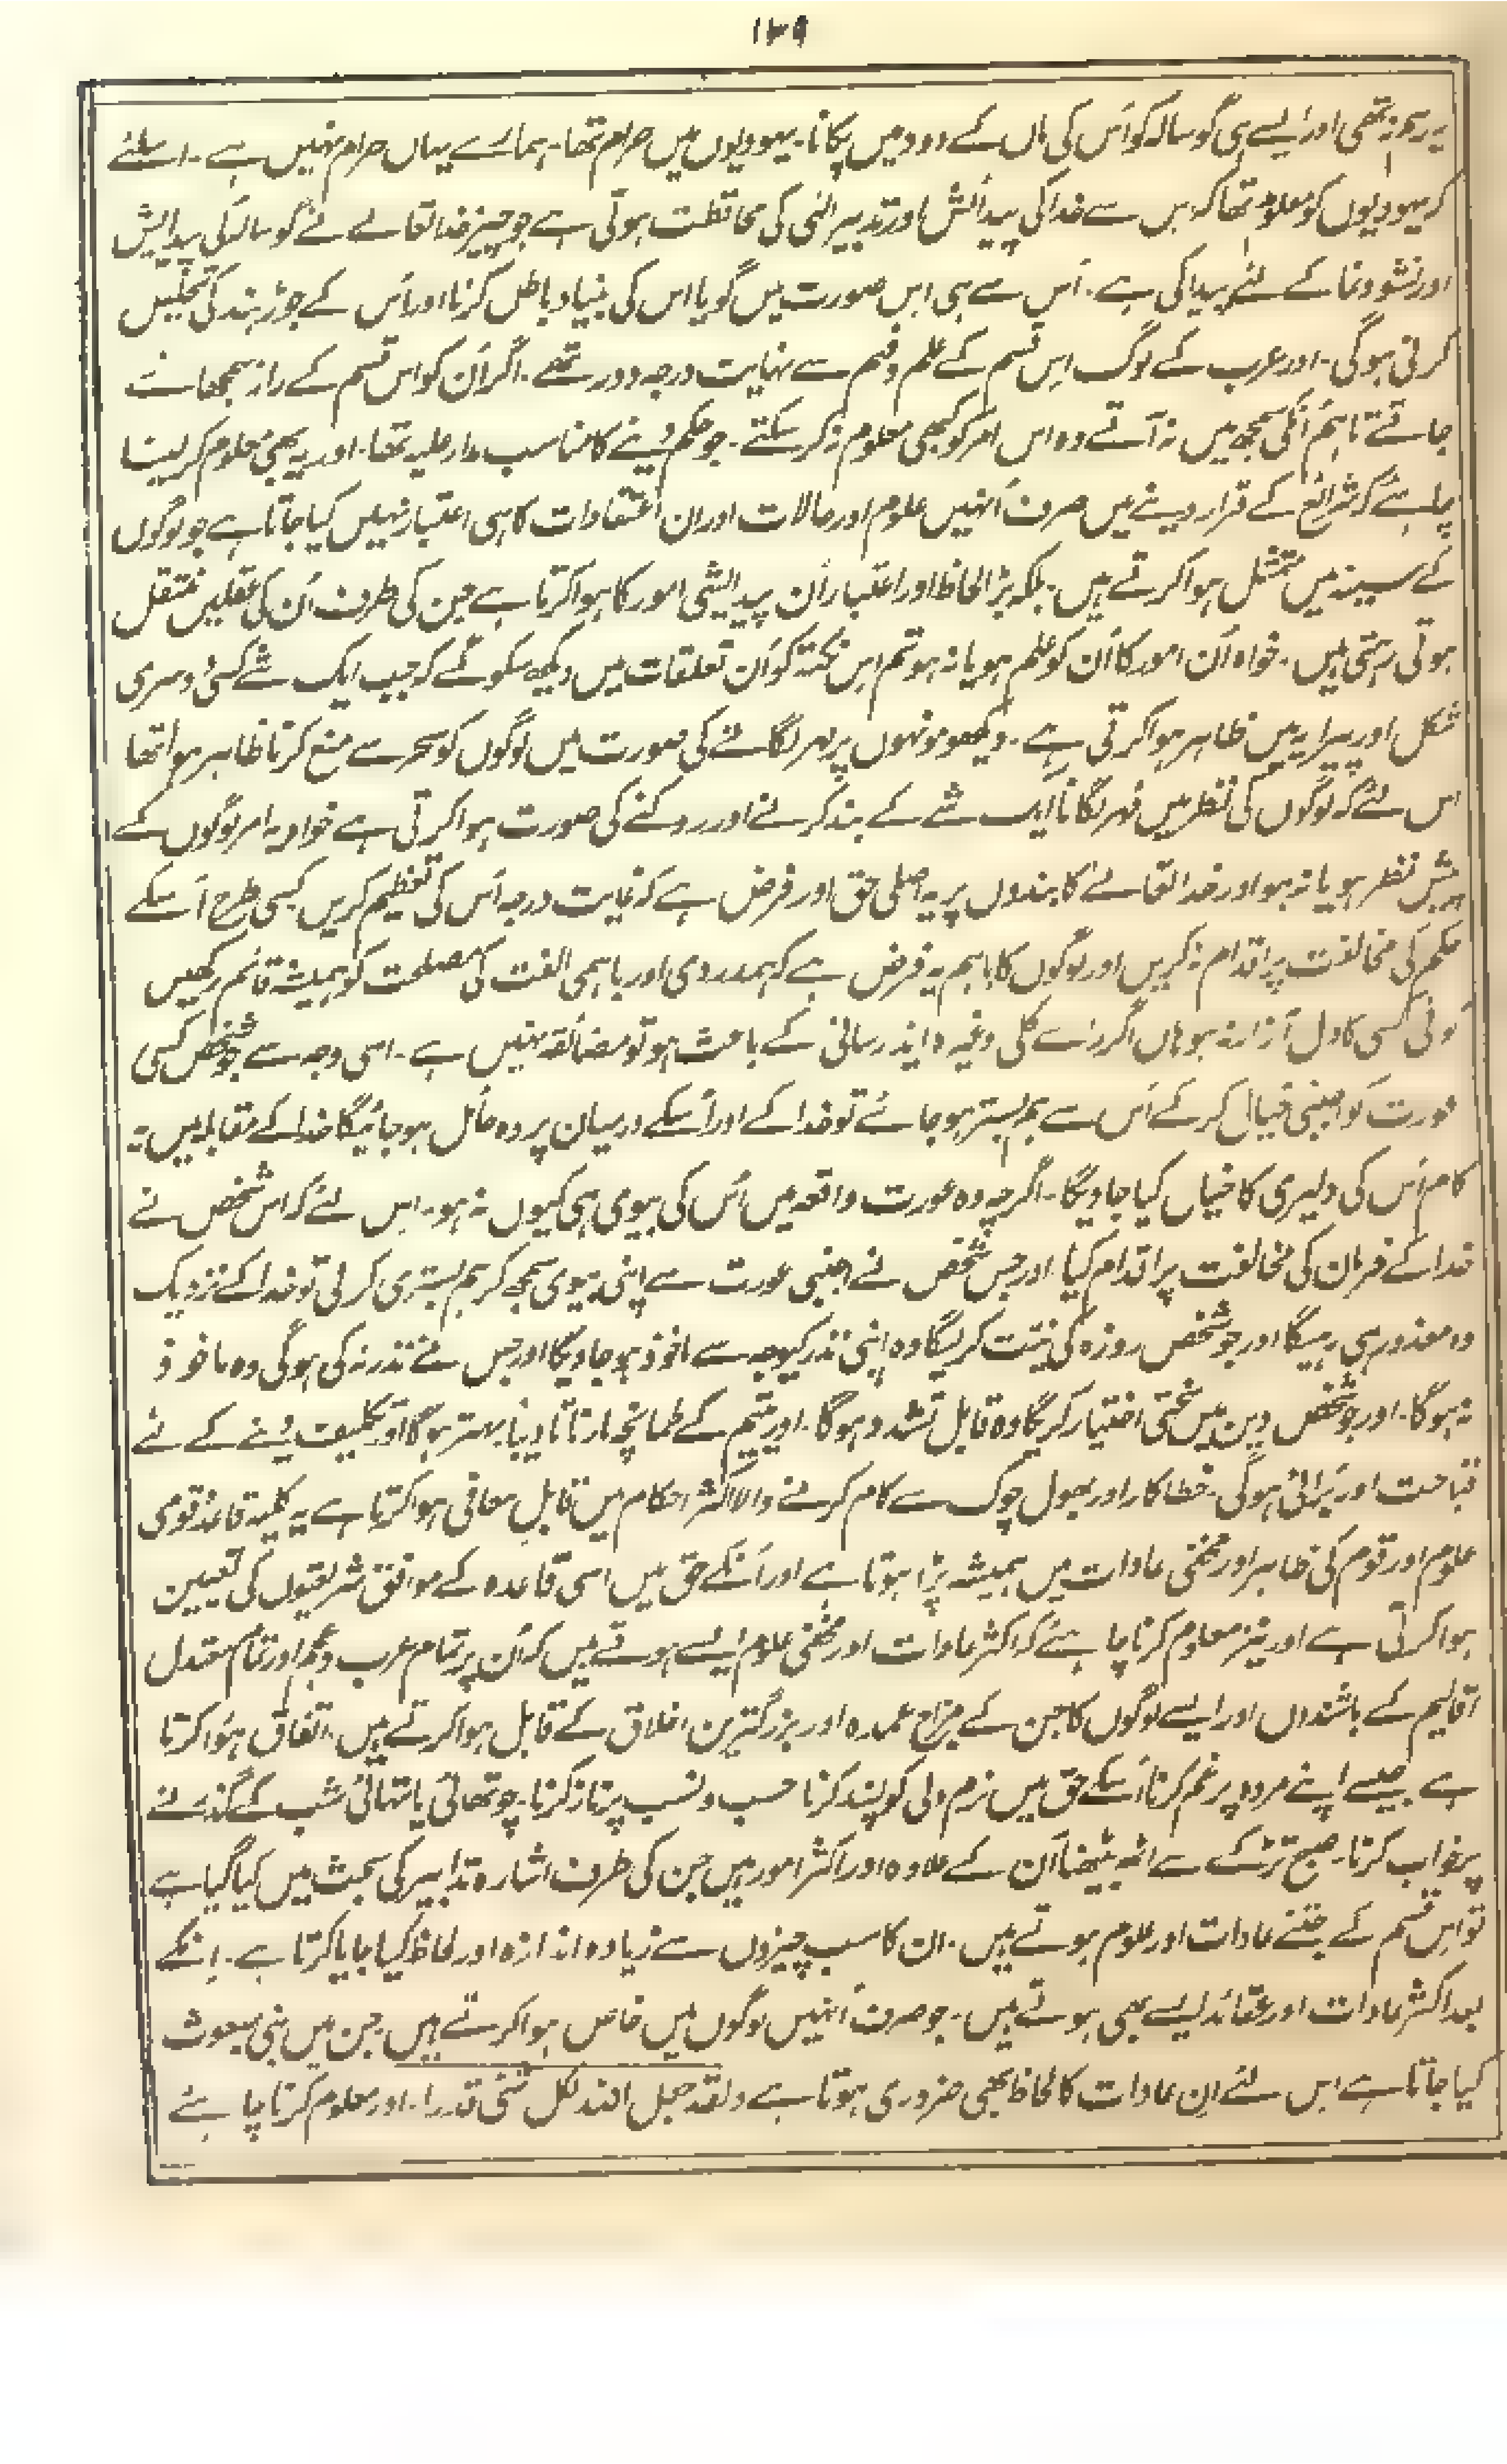 ۱۳۹
یہ رسم نہ تھی اور ایسے ہی گوسالہ کو اُس کی ماں کے دودہ میں پکانا۔ یہودیوں میں حرام تھا۔ ہمارے یہاں حرام نہیں ہے۔ اسلئے
کہ یہودیوں کو معلوم تھا کہ اس سے خدا کی پیدائش اور تدبیر الٰہی کی مخالفت ہوتی ہے جو چیز خدا تعالےٰ نے گوسالہ کی پیدایش
اور نشوونما کے لئے پیدا کی ہے۔ اُس سے ہی اس صورت میں گویا اس کی بنیاد باطل کرنا اور اُس کے جوڑ بند کی تحلیل
کرنی ہوگی۔ اور عرب کے لوگ اس قسم کے علم و فہم سے نہایت درجہ دور تھے۔ اگر اُن کو اس قسم کے راز سمجھائے
جاتے تاہم اُنکی سمجھ میں نہ آتے وہ اس امر کو کبھی معلوم نہ کر سکتے۔ جو حکم دینے کا مناسب مدار علیہ تھا۔ اور یہ بھی معلوم کر لینا
چاہئے کہ شرائع کے قرار دینے میں صرف اُنہیں علوم اور حالات اور ان اعتقادات کا ہی اعتبار نہیں کیا جاتا ہے جو لوگوں
کے سینہ میں متمثل ہوا کرتے ہیں۔ بلکہ بڑا لحاظ اور اعتبار اُن پیدایشی امور کا ہوا کرتا ہے جن کی طرف اُن کی عقلیں منتقل
ہوتی رہتی ہیں۔ خواہ اُن امور کا اُن کو علم ہو یا نہ ہو تم اس نکتہ کو اُن تعلقات میں دیکھ سکو گے کہ جب ایک شے کسی دوسری
شکل اور پیرایہ میں ظاہر ہوا کرتی ہے۔ دیکھو مونہوں پر مہر لگانے کی صورت میں لوگوں کو سحر سے منع کرنا ظاہر ہوا تھا
اس لئے کہ لوگوں کی نظر میں مُہر لگانا ایک شے کے بند کرنے اور روکنے کی صورت ہوا کرتی ہے خواہ یہ امر لوگوں کے
پیش نظر ہو یا نہ ہو اور خدا تعالےٰ کا بندوں پر یہ اصلی حق اور فرض ہے کہ غایت درجہ اُس کی تعظیم کریں کسی طرح اُسکے
حکم کی مخالفت پر اقدام نہ کریں اور لوگوں کا باہم یہ فرض ہے کہ ہمدردی اور باہمی الفت کی مصلحت کو ہمیشہ قائم رکھیں
کوئی کسی کا دل آزار نہ ہو ہاں اگر رائے کلی وغیرہ ایذا رسانی کے باعث ہو تو مضائقہ نہیں ہے۔ اسی وجہ سے جو شخص کسی
عورت کو اجنبی خیال کر کے اُس سے ہم بستر ہو جائے تو خدا کے اور اُسکے درمیان پردہ حائل ہو جائیگا خدا کے مقابلہ میں یہ
کام اُس کی دلیری کا خیال کیا جاویگا۔ اگرچہ وہ عورت واقعہ میں اُس کی بیوی ہی کیوں نہ ہو۔ اس لئے کہ اس شخص نے
خدا کے فرمان کی مخالفت پر اقدام کیا اور جس شخص نے اجنبی عورت سے اپنی بیوی سمجھ کر ہم بستری کر لی تو خدا کے نزدیک
وہ معذور ہی رہیگا اور جو شخص روزہ کی نیّت کریگا وہ اپنی نذر کیوجہ سے ماخوذ ہو جاویگا اور جس نے نذر نہ کی ہوگی وہ ماخوذ
نہ ہوگا۔ اور جو شخص دین میں سختی اختیار کریگا وہ قابل تشدد ہوگا۔ اور یتیم کے طمانچہ مارنا تادیباً بہتر ہوگا اور تکلیف دینے کے لئے
قباحت اور بُرائی ہوگی۔ خطاکار اور بھول چوک سے کام کرنے والا اکثر احکام میں قابل معافی ہوا کرتا ہے یہ کلیہ قاعدہ قوی
علوم اور قوم کی ظاہر اور مخفی عادات میں ہمیشہ پڑا ہوتا ہے اور اُنکے حق میں اسی قاعدہ کے موافق شریعتوں کی تعیین
ہوا کرتی ہے اور نیز معلوم کرنا چاہئے کہ اکثر عادات اور مخفی علوم ایسے ہوتے ہیں کہ اُن پر تمام عرب و عجم اور تمام معتدل
اقالیم کے باشندوں اور ایسے لوگوں کا جن کے مزاج عمدہ اور بزرگترین اخلاق کے قابل ہوا کرتے ہیں۔ اتفاق ہوا کرتا
ہے جیسے اپنے مردہ پر غم کرنا اُسکے حق میں نرم دلی کو پسند کرنا حسب و نسب پر ناز کرنا۔ چوتھائی یا تہائی شب کے گذرنے
پر خواب کرنا۔ صبح تڑکے سے اٹھ بیٹھنا اُن کے علاوہ اور اکثر امور ہیں جن کی طرف اشارہ تدابیر کی بحث میں کیا گیا ہے
تو اس قسم کے جتنے عادات اور علوم ہوتے ہیں۔ ان کا سب چیزوں سے زیادہ اندازہ اور لحاظ کیا جایا کرتا ہے۔ انکے
بعد اکثر عادات اور عقائد ایسے بھی ہوتے ہیں۔ جو صرف اُنہیں لوگوں میں خاص ہوا کرتے ہیں جن میں نبی مبعوث
کیا جاتا ہے اس لئے ان عادات کا لحاظ بھی ضروری ہوتا ہے ولقد جعل اللہ لکل شئ قدرا۔ اور معلوم کرنا چاہئے